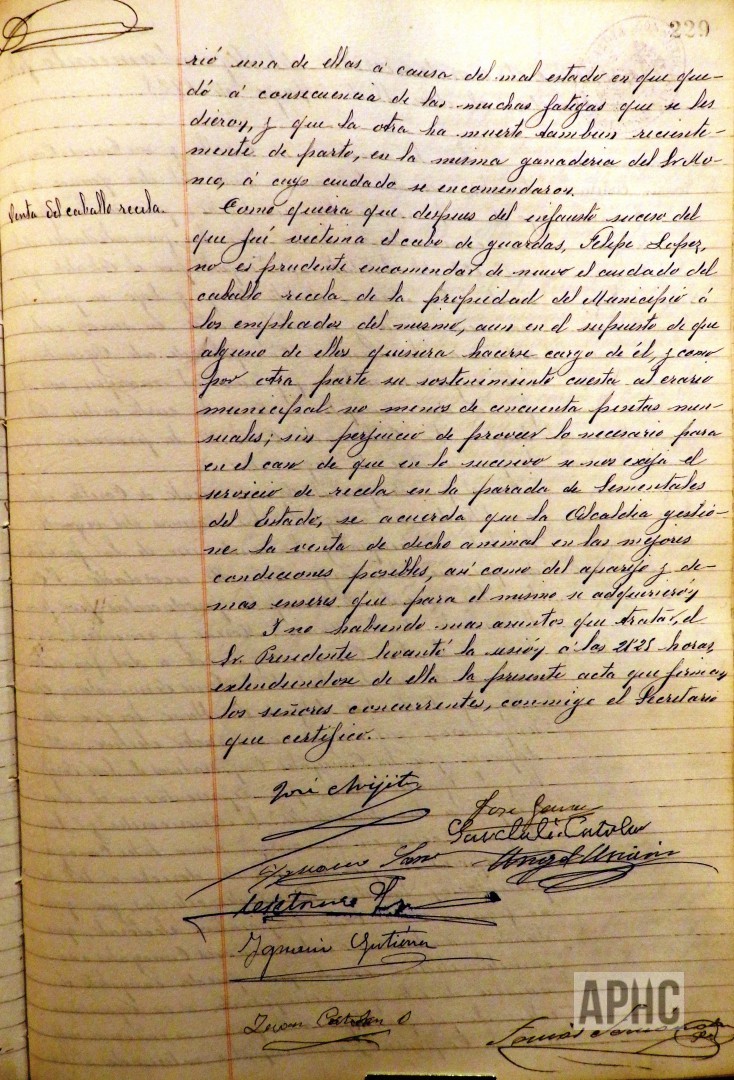 229
rió una de ellas á causa del mal estado en que que-
dó á consecuencia de las muchas fatigas que se les
dieron, y que la otra ha muerto tambien reciente-
mente de parto, en la misma ganaderia del Sr. Mo-
neo, á cuyo cuidado se encomendaron.
Venta del caballo recela.
Como quiera que despues del infausto suceso del
que fué victima el cabo de guardas, Felipe Lopez,
no es prudente encomendar de nuevo el cuidado del
caballo recela de la propiedad del Municipio á
los empleados del mismo, aun en el supuesto de que
alguno de ellos quisiera hacerse cargo de él, y como
por otra parte su sostenimiento cuesta al erario
municipal no menos de cincuenta pesetas men-
suales; sin perjuicio de proveer lo necesario para
en el caso de que en lo sucesivo se nos exija el
servicio de recela en la parada de Sementales
del Estado, se acuerda que la Alcaldia gestio-
ne la venta de dicho animal en las mejores
condiciones posibles, asi como del aparejo y de-
mas enseres que para el mismo se adquirieron
Y no habiendo mas asuntos que tratar, el
Sr. Presidente levantó la sesión á las 21'25 horas,
extendiendose de ella la presente acta que firman
los señores concurrentes, conmigo el Secretario
que certifico.
José
Jose
Ignacio Gutiérrez
APHC